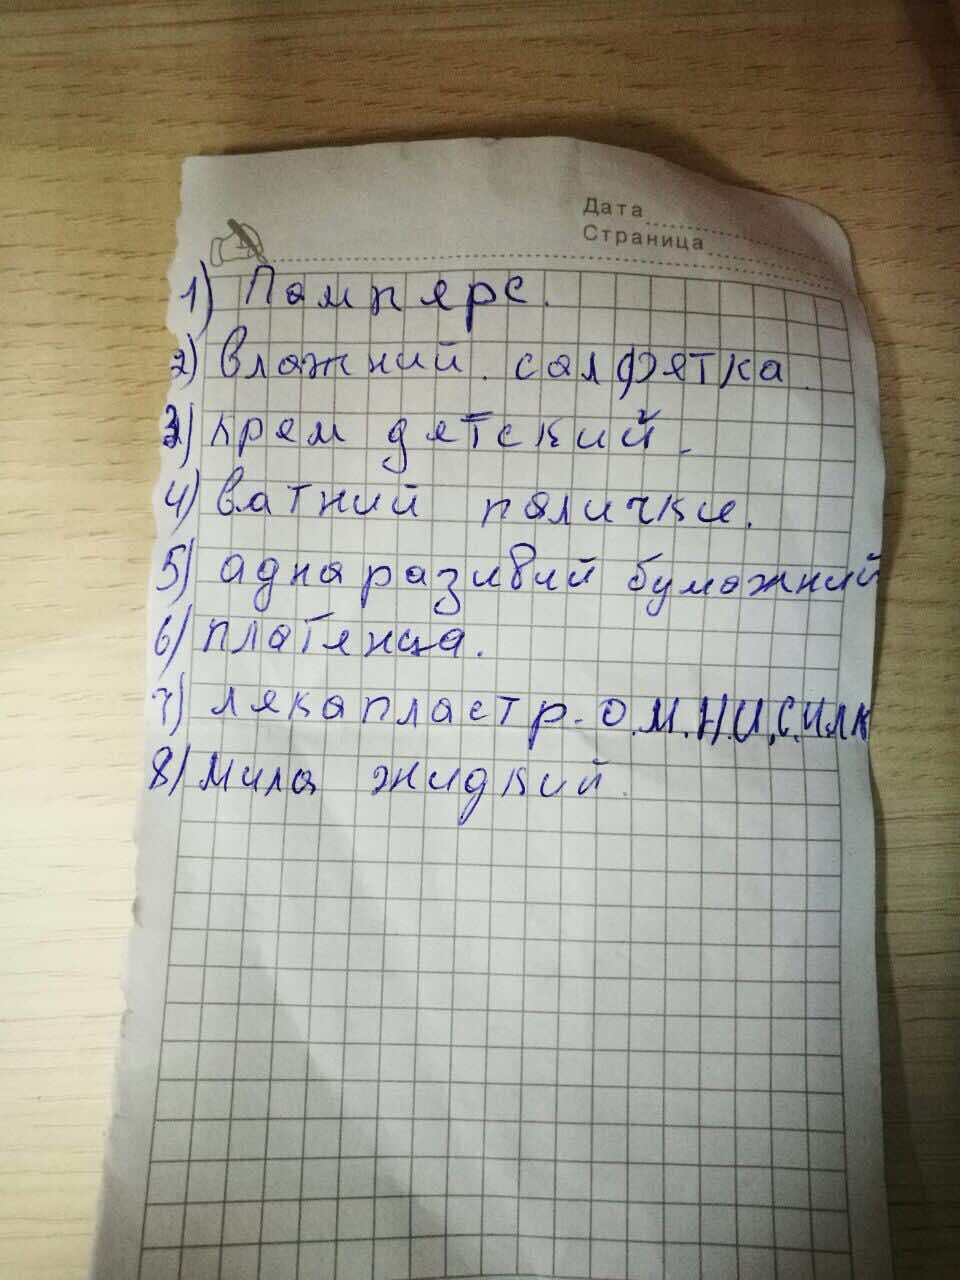 Дата
Страница
1) Помпярс.
2) влажний. салфятка.
3) крям дятский.
4) ватний палички.
5) аднаразивий бумажний
6) платянца.
7) лякапластр. О.М.Н.И.С.ИЛК
8) мила жидкий.